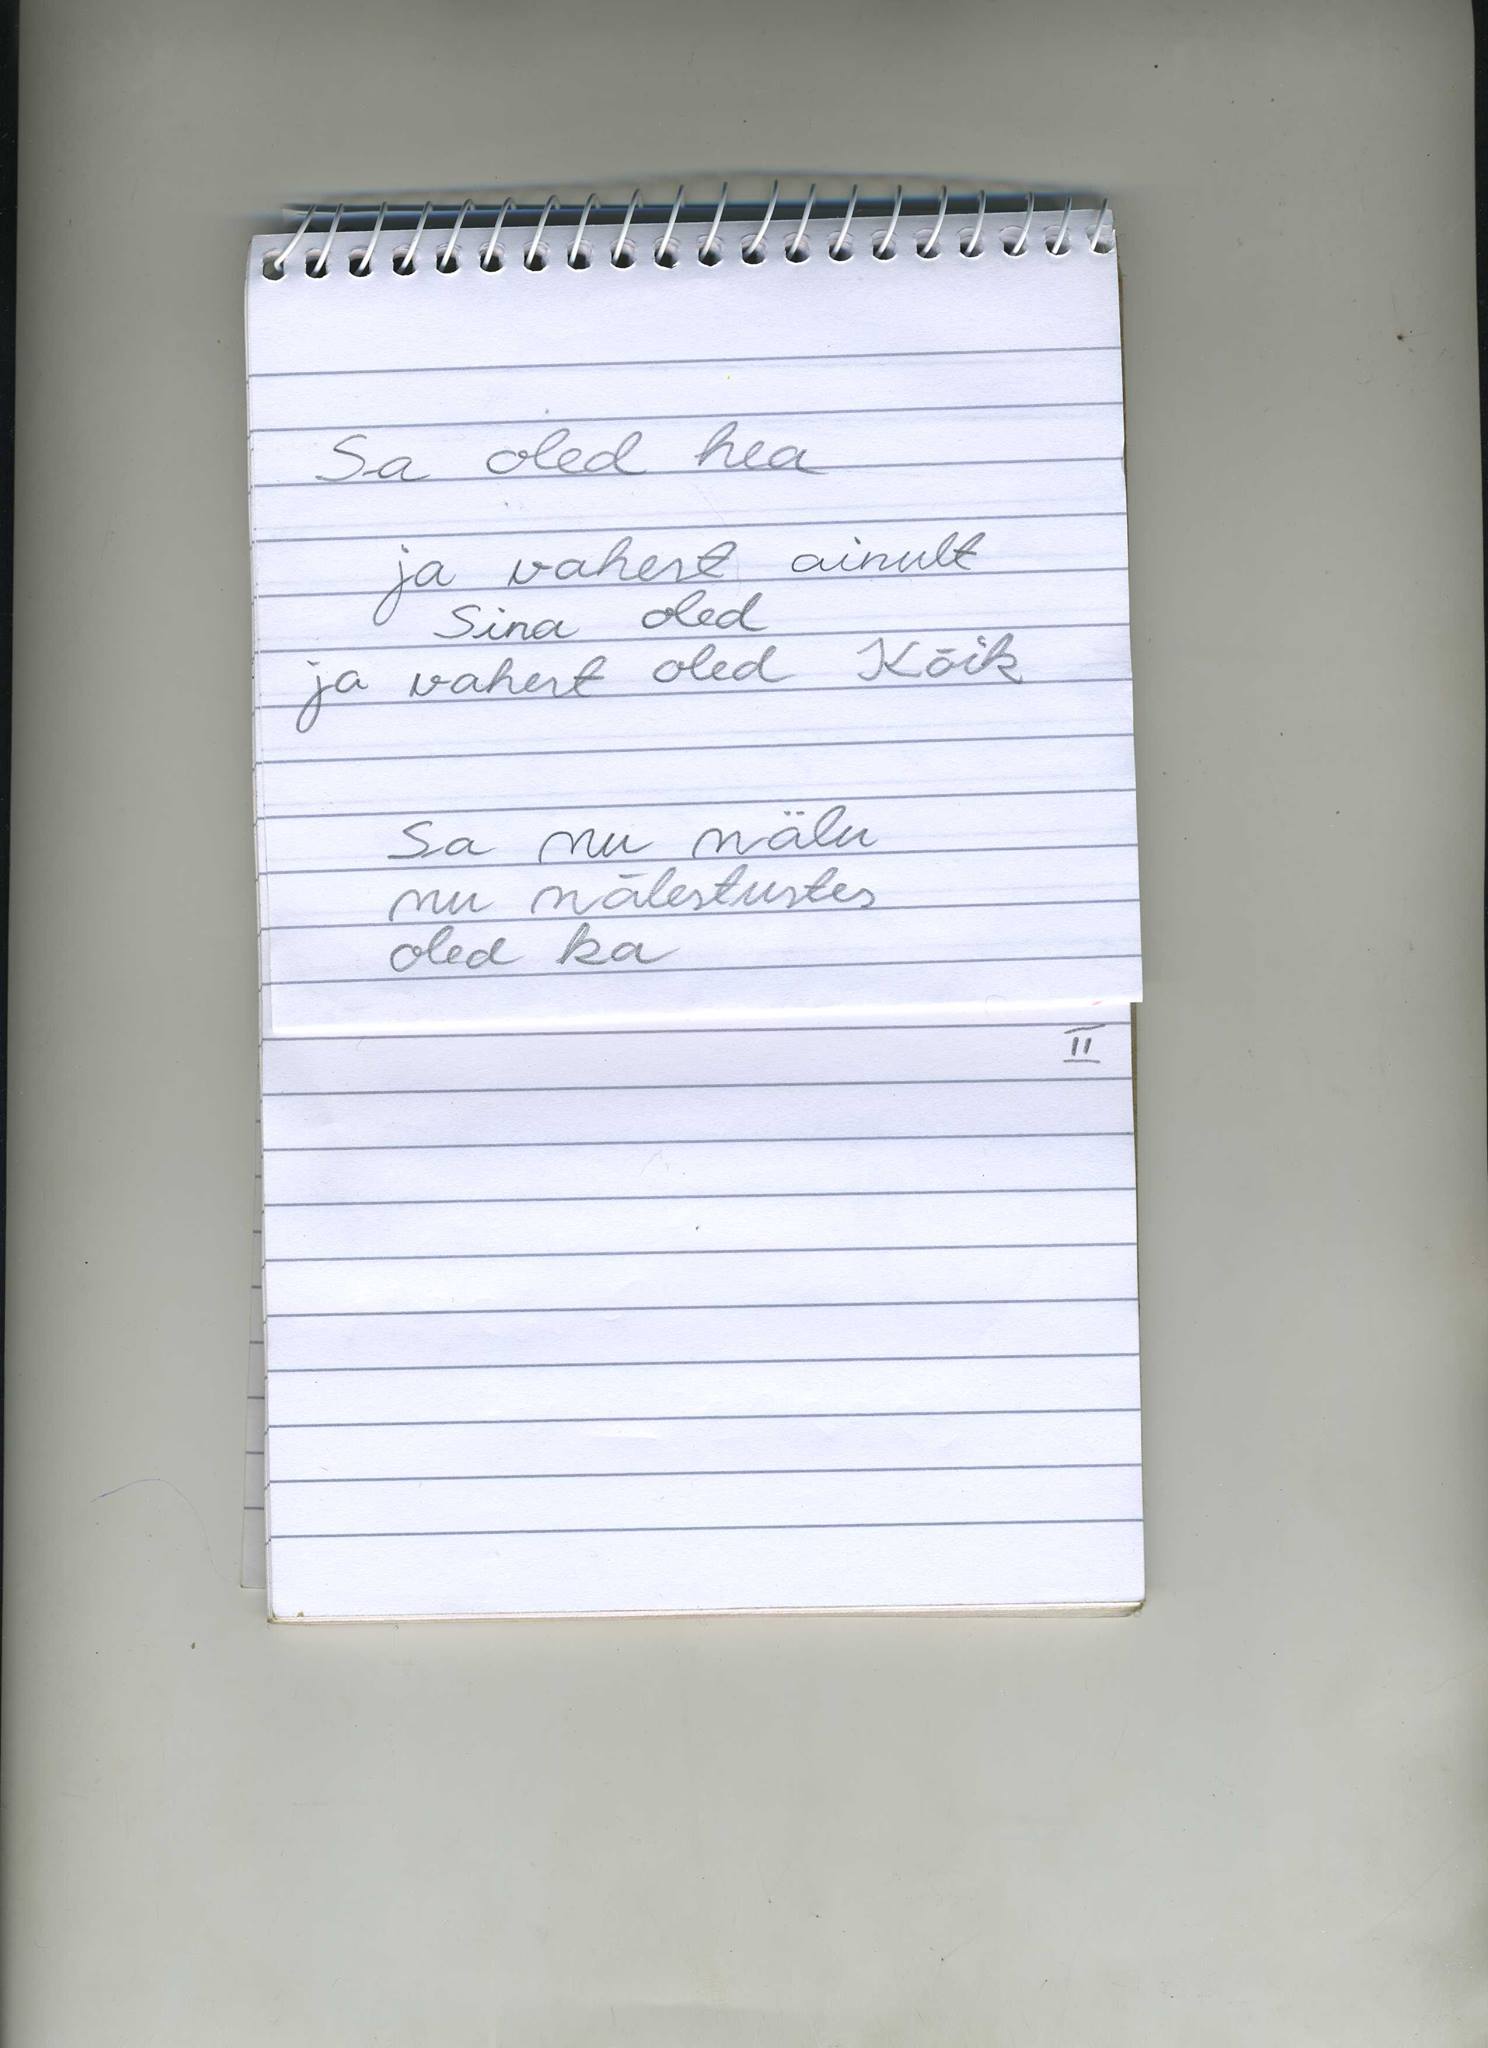 Sa oled hea
ja vahest ainult
Sina oled
ja vahest oled Kõik
Sa mu mälu
mu mälestustes
oled ka
II